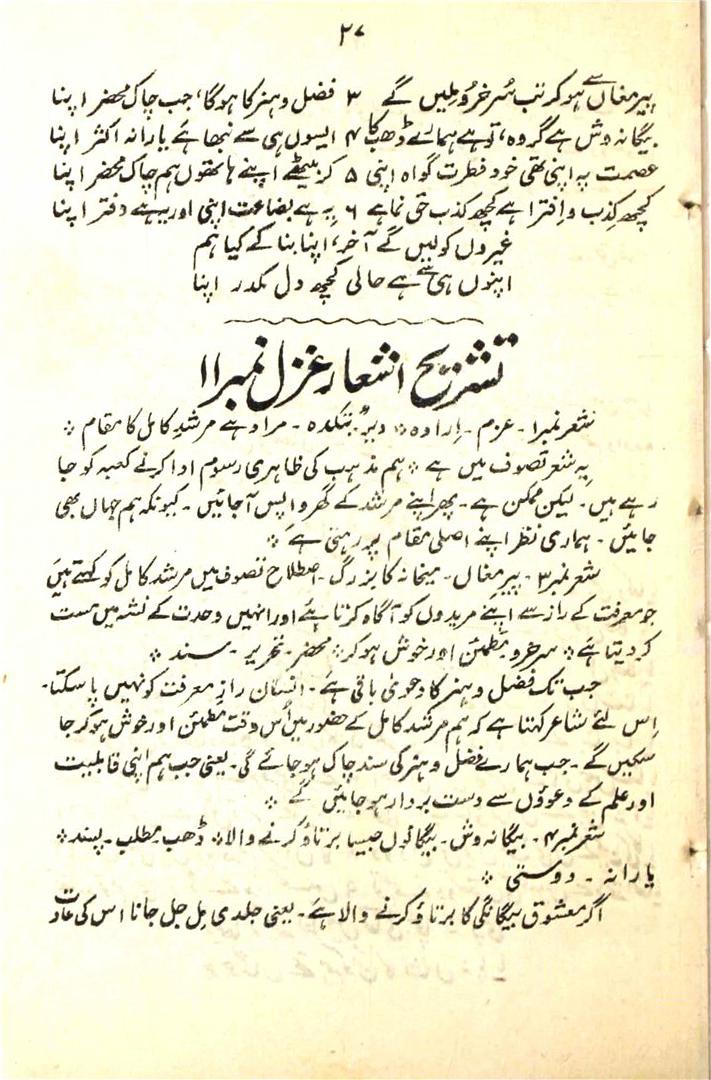 ۲۷
پیرِ مغاں سے ہو کر تب سُرخرُو ملیں گے ۳ فضل و ہنر کا ہوگا، جب چاک محضر اپنا
بیگانہ وش ہے گر وہ، تو ہے ہمارے ڈھب کا ۴ ایسوں ہی سے نبھا ہے یارانہ اکثر اپنا
عصمت پہ اپنی تھی خود فطرت گواہ اپنی ۵ کر بیٹھے اپنے ہاتھوں ہم چاک محضر اپنا
کچھ کِذب و اِفترا ہے کچھ کذب حق نما ہے ۶ یہ ہے بضاعت اپنی اور یہ ہے دفتر اپنا
غیروں کو لیں گے آخر، اپنا بنا کے کیا ہم
اپنوں ہی سے ہے حالی کچھ دل مکدر اپنا
تشریح اشعار غزل نمبر ۱۱
شعر نمبر ۱ ۔ عزم ۔ اِرادہ ٭ دیر ۔ بتکدہ ۔ مراد ہے مرشدِ کامل کا مقام ٭
یہ شعر تصوف میں ہے ٭ ہم مذہب کی ظاہری رسوم ادا کرنے کعبہ کو جا
رہے ہیں ۔ لیکن ممکن ہے ۔ پھر اپنے مرشد کے گھر واپس آجائیں ۔ کیونکہ ہم جہاں بھی
جائیں ۔ ہماری نظر اپنے اصلی مقام پر رہتی ہے ٭
شعر نمبر ۳ ۔ پیرِ مغاں ۔ میخانہ کا بزرگ ۔ اصطلاح تصوف میں مرشد کامل کو کہتے ہیں
جو معرفت کے راز سے اپنے مریدوں کو آگاہ کرتا ہے اور انہیں وحدت کے نشہ میں مست
کر دیتا ہے ٭ سرخرو مطمئن اور خوش ہو کر ٭ محضر ۔ تحریر ۔ سند ٭
جب تک فضل و ہنر کا دعویٰ باقی ہے ۔ انسان رازِ معرفت کو نہیں پا سکتا ۔
اِس لئے شاعر کہتا ہے کہ ہم مرشد کامل کے حضور میں اُس وقت مطمئن اور خوش ہو کر جا
سکیں گے ۔ جب ہمارے فضل و ہنر کی سند چاک ہو جائے گی ۔ یعنی جب ہم اپنی قابلیت
اور علم کے دعوؤں سے دست بردار ہو جائیں گے ٭
شعر نمبر ۴ ۔ بیگانہ وش ۔ بیگانوں جیسا برتاؤ کرنے والا ٭ ڈھب مطلب ۔ پسند ٭
یارانہ ۔ دوستی ٭
اگر معشوق بیگانگی کا برتاؤ کرنے والا ہے ۔ یعنی جلدی مِل جل جانا اس کی عادت